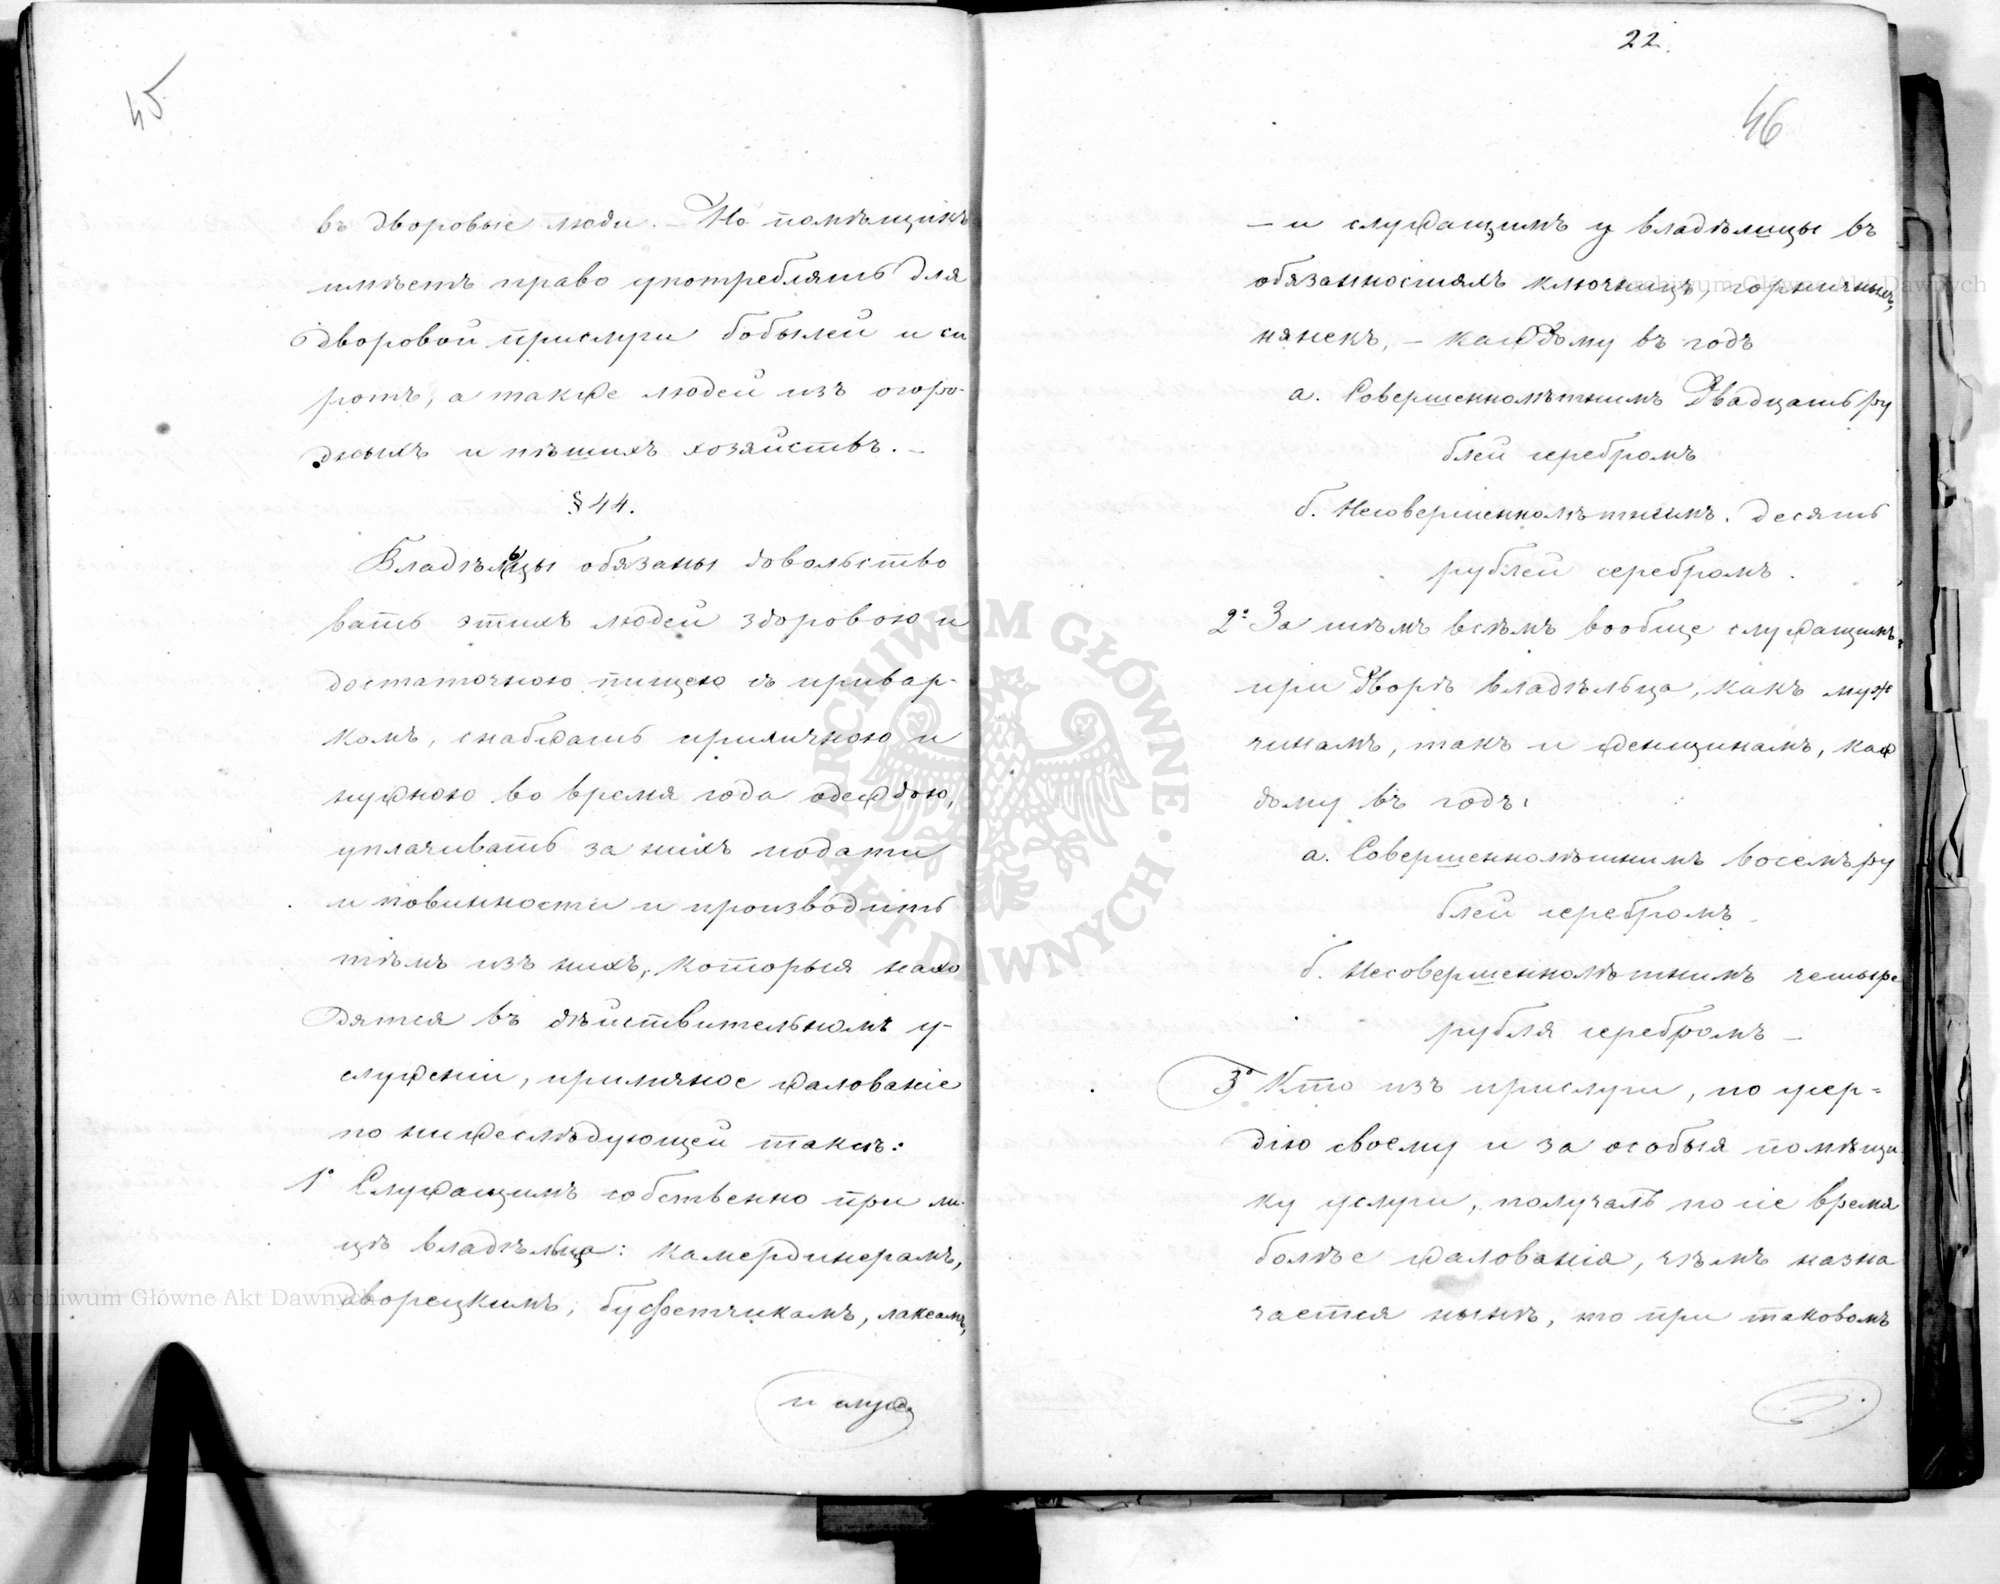 45
въ дворовые люди. — Но помѣщикъ
имѣетъ право употреблять для
дворовой прислуги бобылей и си
ротъ, а также людей изъ огоро-
дныхъ и пѣшихъ хозяйствъ. —
§ 44.
Владѣльцы обязаны довольство
вать этихъ людей здоровою и
достаточною пищею съ привар-
комъ, снабжать приличною и
нужною во время года одеждою,
уплачивать за нихъ подати
и повинности и производить
тѣмъ изъ нихъ, которыя нахо
дятся въ дѣйствительномъ у-
служеніи, приличное жалованіе
по нижеслѣдующей таксѣ:
1° Служащимъ собственно при ли-
цѣ владѣльца: камердинерамъ,
дворецкимъ, буфетчикамъ, лакеамъ,
и служ
22.
46
— и служащимъ у владѣлицы въ
обязанностяхъ ключницъ, горничныхъ,
нянекъ, — каждому въ годъ
а. Совершеннолѣтнимъ Двадцать ру
блей серебромъ
б. Несовершеннолѣтнимъ. десять
рублей серебромъ.
2° За тѣмъ всѣмъ вообще служащимъ
при дворѣ владѣльца, какъ муж
чинамъ, такъ и женщинамъ, каж
дому въ годъ:
а. Совершеннолѣтнимъ восемь ру
блей серебромъ —
б. Несовершеннолѣтнимъ четыре
рубля серебромъ —
3° Кто изъ прислуги, по усер-
дію своему и за особыя помѣщи
ку услуги, получалъ по сіе время
болѣе жалованія, чѣмъ назна
чается нынѣ, то при таковомъ
ARCHIWUM GŁÓWNE · AKT DAWNYCH ·
Archiwum Główne Akt Dawnych
Archiwum Główne Akt Dawnych